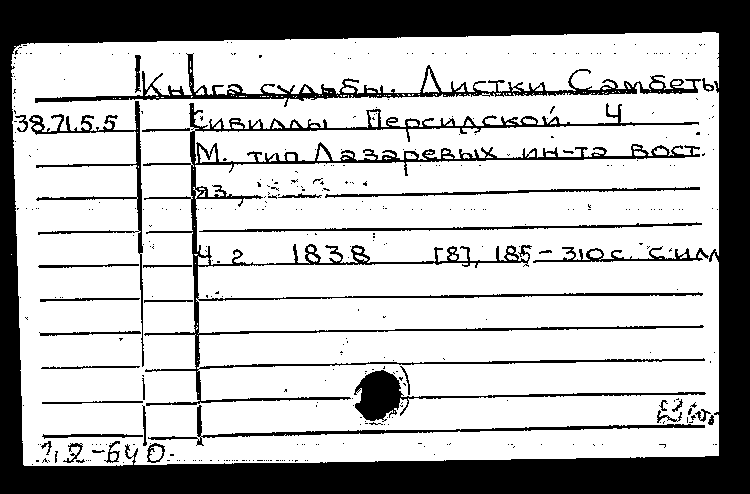 Книга судьбы. Листки Самбеты
38.71.5.5 Сивиллы Персидской. Ч
М., тип. Лазаревых ин-та вост.
яз.,
Ч. 2 1838 [8], 185-310 с. с илл